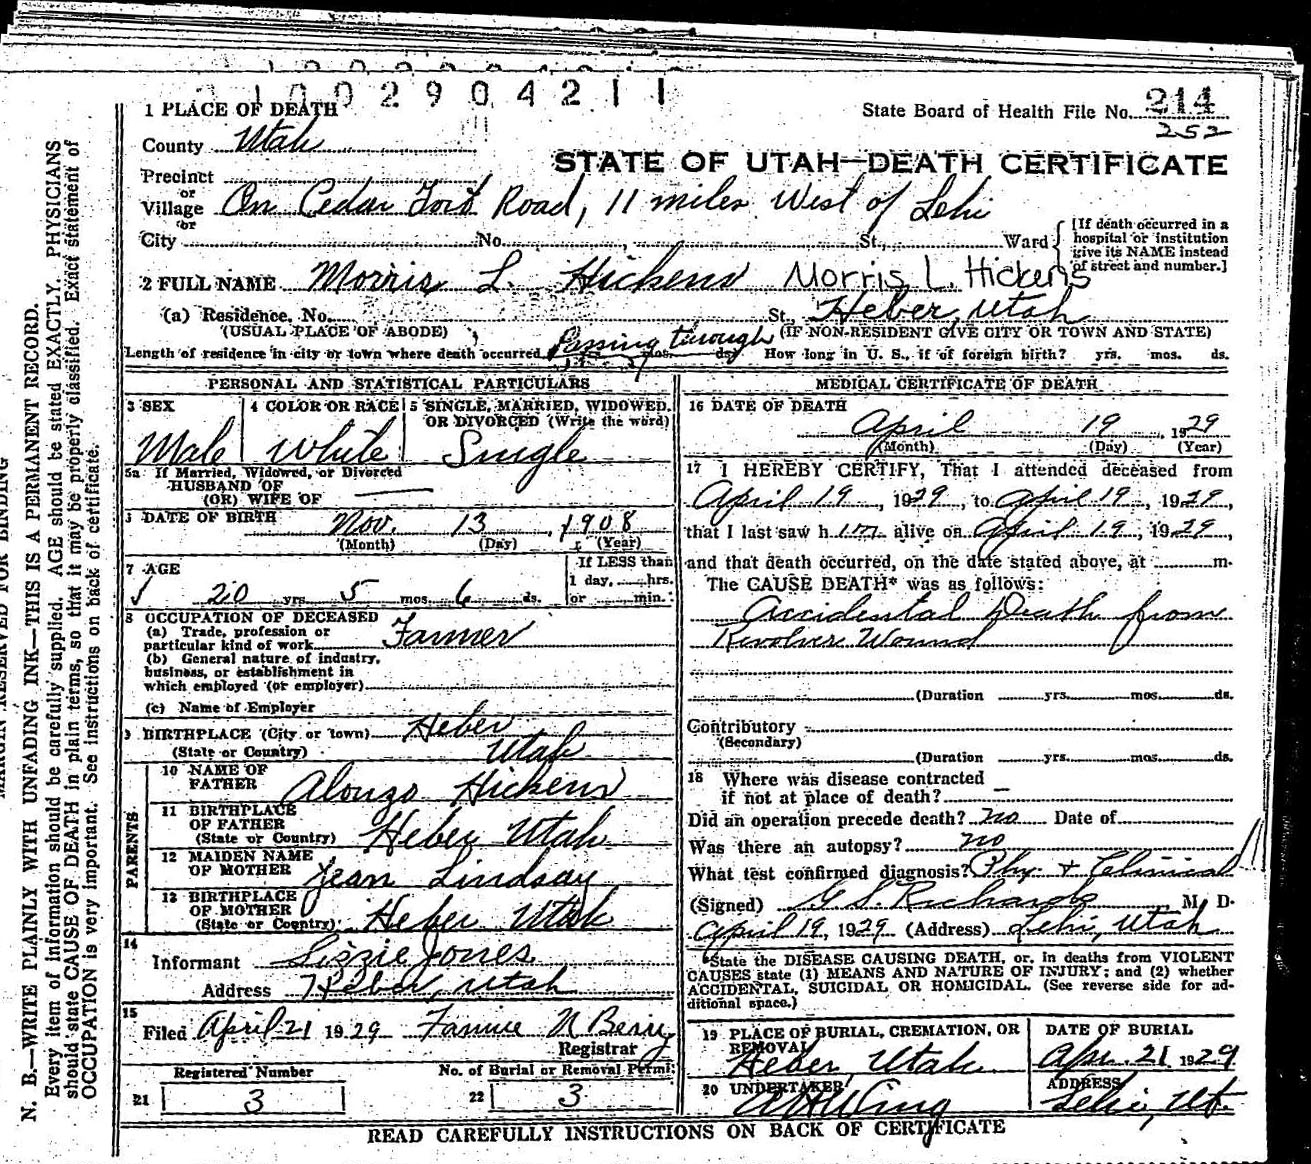 1002904211
1 PLACE OF DEATH
State Board of Health File No. 214
252
County Utah
STATE OF UTAH—DEATH CERTIFICATE
Precinct
or
Village On Cedar Fort Road, 11 miles West of Lehi
or
City No. , St., Ward
[If death occurred in a hospital or institution give its NAME instead of street and number.]
2 FULL NAME Morris L. Hickens Morris L. Hickens
(a) Residence, No. St., Heber, Utah
(USUAL PLACE OF ABODE) (IF NON-RESIDENT GIVE CITY OR TOWN AND STATE)
Length of residence in city or town where death occurred Passing through mos. ds. How long in U. S., if of foreign birth? yrs. mos. ds.
PERSONAL AND STATISTICAL PARTICULARS
3 SEX 4 COLOR OR RACE 5 SINGLE, MARRIED, WIDOWED,
OR DIVORCED (Write the word)
Male White Single
5a If Married, Widowed, or Divorced
HUSBAND OF
(OR) WIFE OF
DATE OF BIRTH Nov. 13, 1908
(Month) (Day) (Year)
7 AGE If LESS than
1 day, hrs.
20 yrs. 5 mos. 6 ds. or min.
8 OCCUPATION OF DECEASED
(a) Trade, profession or
particular kind of work Farmer
(b) General nature of industry,
business, or establishment in
which employed (or employer)
(c) Name of Employer
9 BIRTHPLACE (City or town) Heber
(State or Country) Utah
PARENTS
10 NAME OF
FATHER Alonzo Hickens
11 BIRTHPLACE
OF FATHER
(State or Country) Heber Utah
12 MAIDEN NAME
OF MOTHER Jean Lindsay
13 BIRTHPLACE
OF MOTHER
(State or Country) Heber Utah
14
Informant Lizzie Jones
Address Heber, Utah
15
Filed April 21 1929 Fannie N Berry
Registrar
Registered Number No. of Burial or Removal Permit
21 3 22 3
MEDICAL CERTIFICATE OF DEATH
16 DATE OF DEATH
April 19, 1929
(Month) (Day) (Year)
17 I HEREBY CERTIFY, That I attended deceased from
April 19, 1929, to April 19, 1929,
that I last saw him alive on April 19, 1929,
and that death occurred, on the date stated above, at m.
The CAUSE DEATH* was as follows:
Accidental Death from
Revolver Wound
(Duration yrs. mos. ds.
Contributory
(Secondary)
(Duration yrs. mos. ds.
18 Where was disease contracted
if not at place of death? —
Did an operation precede death? no Date of
Was there an autopsy? no
What test confirmed diagnosis? Phy. + Clinical
(Signed) G S. Richards M. D.
April 19, 1929 (Address) Lehi, Utah
*State the DISEASE CAUSING DEATH, or, in deaths from VIOLENT
CAUSES state (1) MEANS AND NATURE OF INJURY; and (2) whether
ACCIDENTAL, SUICIDAL OR HOMICIDAL. (See reverse side for ad-
ditional space.)
19 PLACE OF BURIAL, CREMATION, OR DATE OF BURIAL
REMOVAL
Heber, Utah Apr. 21 1929
20 UNDERTAKER ADDRESS
A H Wing Lehi, Ut.
READ CAREFULLY INSTRUCTIONS ON BACK OF CERTIFICATE
MARGIN RESERVED FOR BINDING
N. B.—WRITE PLAINLY WITH UNFADING INK—THIS IS A PERMANENT RECORD.
Every item of information should be carefully supplied. AGE should be stated EXACTLY. PHYSICIANS
should state CAUSE OF DEATH in plain terms, so that it may be properly classified. Exact statement of
OCCUPATION is very important. See instructions on back of certificate.